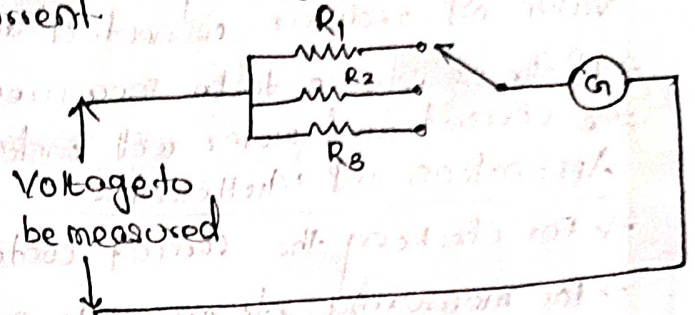 R1
R2
R3
G
Voltage to
be measured